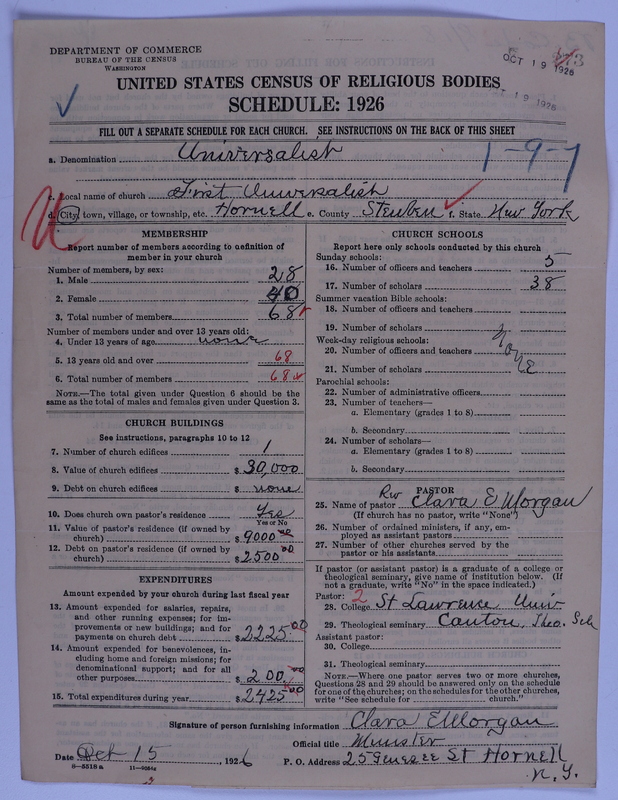 DEPARTMENT OF COMMERCE
BUREAU OF THE CENSUS
WASHINGTON
OCT 19 1926
19 1926
UNITED STATES CENSUS OF RELIGIOUS BODIES
SCHEDULE: 1926
FILL OUT A SEPARATE SCHEDULE FOR EACH CHURCH. SEE INSTRUCTIONS ON THE BACK OF THIS SHEET
a. Denomination Universalist
1-9-7
c. Local name of church First Universalist
d. City, town, village, or township, etc. Hornell e. County Steuben f. State New York
MEMBERSHIP
Report number of members according to definition of
member in your church
Number of members, by sex:
1. Male 28
2. Female 40
3. Total number of members 68
Number of members under and over 13 years old:
4. Under 13 years of age none
5. 13 years old and over 68
6. Total number of members 68
NOTE.—The total given under Question 6 should be
same as the total of males and females given under Question 3.
CHURCH BUILDINGS
See instructions, paragraphs 10 to 12
7. Number of church edifices 1
8. Value of church edifices $ 30,000
9. Debt on church edifices $ none
10. Does church own pastor's residence Yes
Yes or No
11. Value of pastor's residence (if owned by
church) $ 9000.00
12. Debt on pastor's residence (if owned by
church) $ 2500.00
EXPENDITURES
Amount expended by your church during last fiscal year
13. Amount expended for salaries, repairs,
and other running expenses; for im-
provements or new buildings; and for
payments on church debt $ 2225.00
14. Amount expended for benevolences, in-
cluding home and foreign missions; for
denominational support; and for all
other purposes $ 200.00
15. Total expenditures during year $ 2425.00
CHURCH SCHOOLS
Report here only schools conducted by this church
Sunday schools:
16. Number of officers and teachers 5
17. Number of scholars 38
Summer vacation Bible schools:
18. Number of officers and teachers
19. Number of scholars
Week-day religious schools:
20. Number of officers and teachers
None
21. Number of scholars
Parochial schools:
22. Number of administrative officers
23. Number of teachers—
a. Elementary (grades 1 to 8)
b. Secondary
24. Number of scholars—
a. Elementary (grades 1 to 8)
b. Secondary
PASTOR
25. Name of pastor Rev Clara E Morgan
(If church has no pastor, write "None")
26. Number of ordained ministers, if any, em-
ployed as assistant pastors
27. Number of other churches served by the
pastor or his assistants
If pastor (or assistant pastor) is a graduate of a college or
theological seminary, give name of institution below. (If
not a graduate, write "No" in the space indicated.)
Pastor: 2
28. College St Lawrence Univ
29. Theological seminary Canton, Theo. Sch
Assistant pastor:
30. College
31. Theological seminary
NOTE.—Where one pastor serves two or more churches,
Questions 28 and 29 should be answered only on the schedule
for one of the churches; on the schedules for the other churches,
write "See schedule for church."
Signature of person furnishing information Clara E Morgan
Official title Minister
Date Oct 15, 1926 P. O. Address 25 Genesee St Hornell
N.Y.
8-5518 a